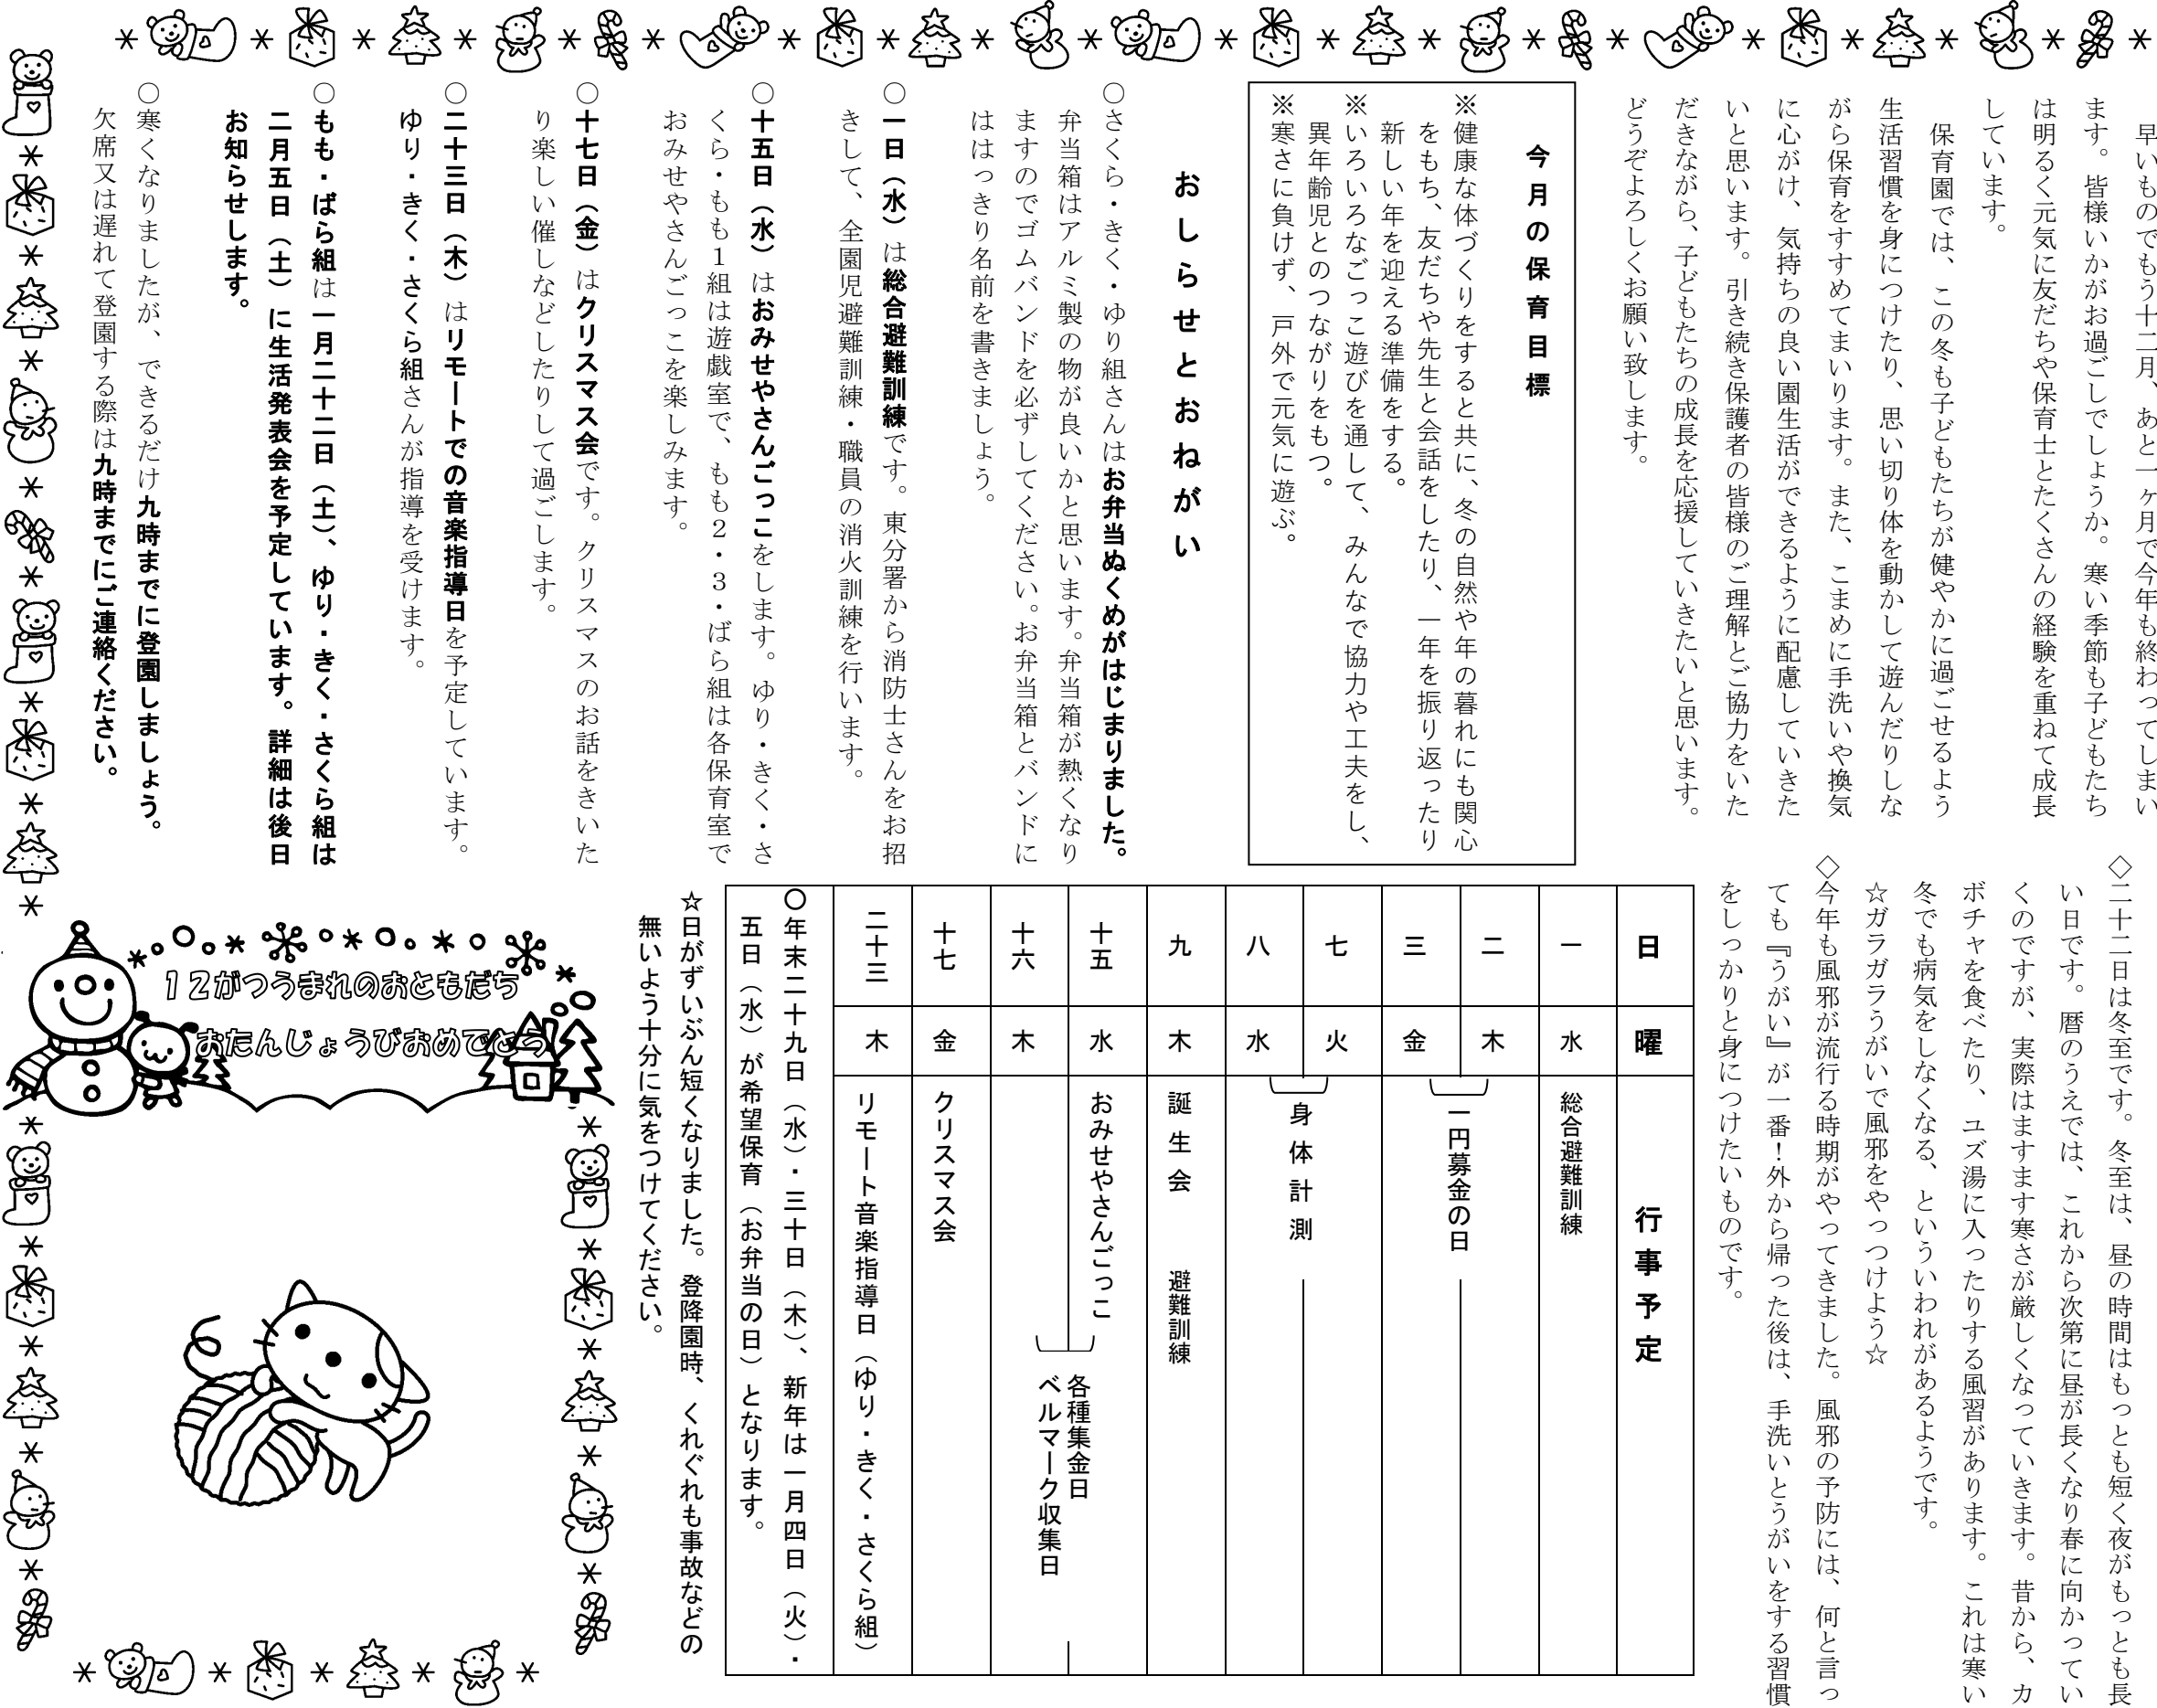 早いものでもう十二月、あと一ヶ月で今年も終わってしまい
ます。皆様いかがお過ごしでしょうか。寒い季節も子どもたち
は明るく元気に友だちや保育士とたくさんの経験を重ねて成長
しています。
保育園では、この冬も子どもたちが健やかに過ごせるよう
生活習慣を身につけたり、思い切り体を動かして遊んだりしな
がら保育をすすめてまいります。また、こまめに手洗いや換気
に心がけ、気持ちの良い園生活ができるように配慮していきた
いと思います。引き続き保護者の皆様のご理解とご協力をいた
だきながら、子どもたちの成長を応援していきたいと思います。
どうぞよろしくお願い致します。
今月の保育目標
※健康な体づくりをすると共に、冬の自然や年の暮れにも関心
をもち、友だちや先生と会話をしたり、一年を振り返ったり
新しい年を迎える準備をする。
※いろいろなごっこ遊びを通して、みんなで協力や工夫をし、
異年齢児とのつながりをもつ。
※寒さに負けず、戸外で元気に遊ぶ。
おしらせとおねがい
○さくら・きく・ゆり組さんはお弁当ぬくめがはじまりました。
弁当箱はアルミ製の物が良いかと思います。弁当箱が熱くなり
ますのでゴムバンドを必ずしてください。お弁当箱とバンドに
ははっきり名前を書きましょう。
○一日（水）は総合避難訓練です。東分署から消防士さんをお招
きして、全園児避難訓練・職員の消火訓練を行います。
○十五日（水）はおみせやさんごっこをします。ゆり・きく・さ
くら・もも１組は遊戯室で、もも２・３・ばら組は各保育室で
おみせやさんごっこを楽しみます。
○十七日（金）はクリスマス会です。クリスマスのお話をきいた
り楽しい催しなどしたりして過ごします。
○二十三日（木）はリモートでの音楽指導日を予定しています。
ゆり・きく・さくら組さんが指導を受けます。
○もも・ばら組は一月二十二日（土）、ゆり・きく・さくら組は
二月五日（土）に生活発表会を予定しています。詳細は後日
お知らせします。
○寒くなりましたが、できるだけ九時までに登園しましょう。
欠席又は遅れて登園する際は九時までにご連絡ください。
◇二十二日は冬至です。冬至は、昼の時間はもっとも短く夜がもっとも長
い日です。暦のうえでは、これから次第に昼が長くなり春に向かってい
くのですが、実際はますます寒さが厳しくなっていきます。昔から、カ
ボチャを食べたり、ユズ湯に入ったりする風習があります。これは寒い
冬でも病気をしなくなる、といういわれがあるようです。
☆ガラガラうがいで風邪をやっつけよう☆
◇今年も風邪が流行る時期がやってきました。風邪の予防には、何と言っ
ても『うがい』が一番！外から帰った後は、手洗いとうがいをする習慣
をしっかりと身につけたいものです。
日 曜 行事予定
一 水 総合避難訓練
二 木
三 金
一円募金の日
七 火
八 水
身体計測
九 木 誕生会 避難訓練
十五 水 おみせやさんごっこ
十六 木
各種集金日
ベルマーク収集日
十七 金 クリスマス会
二十三 木 リモート音楽指導日（ゆり・きく・さくら組）
○年末二十九日（水）・三十日（木）、新年は一月四日（火）・
五日（水）が希望保育（お弁当の日）となります。
☆日がずいぶん短くなりました。登降園時、くれぐれも事故などの
無いよう十分に気をつけてください。
１２がつうまれのおともだち
おたんじょうびおめでとう